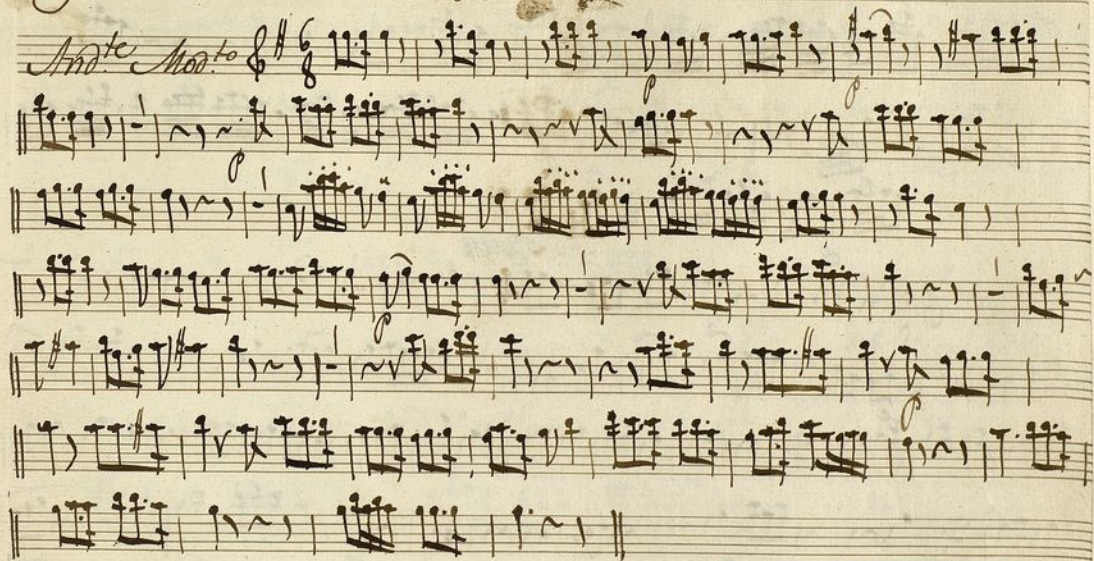 And.te Mod.to 6/8
p p
p
p
p